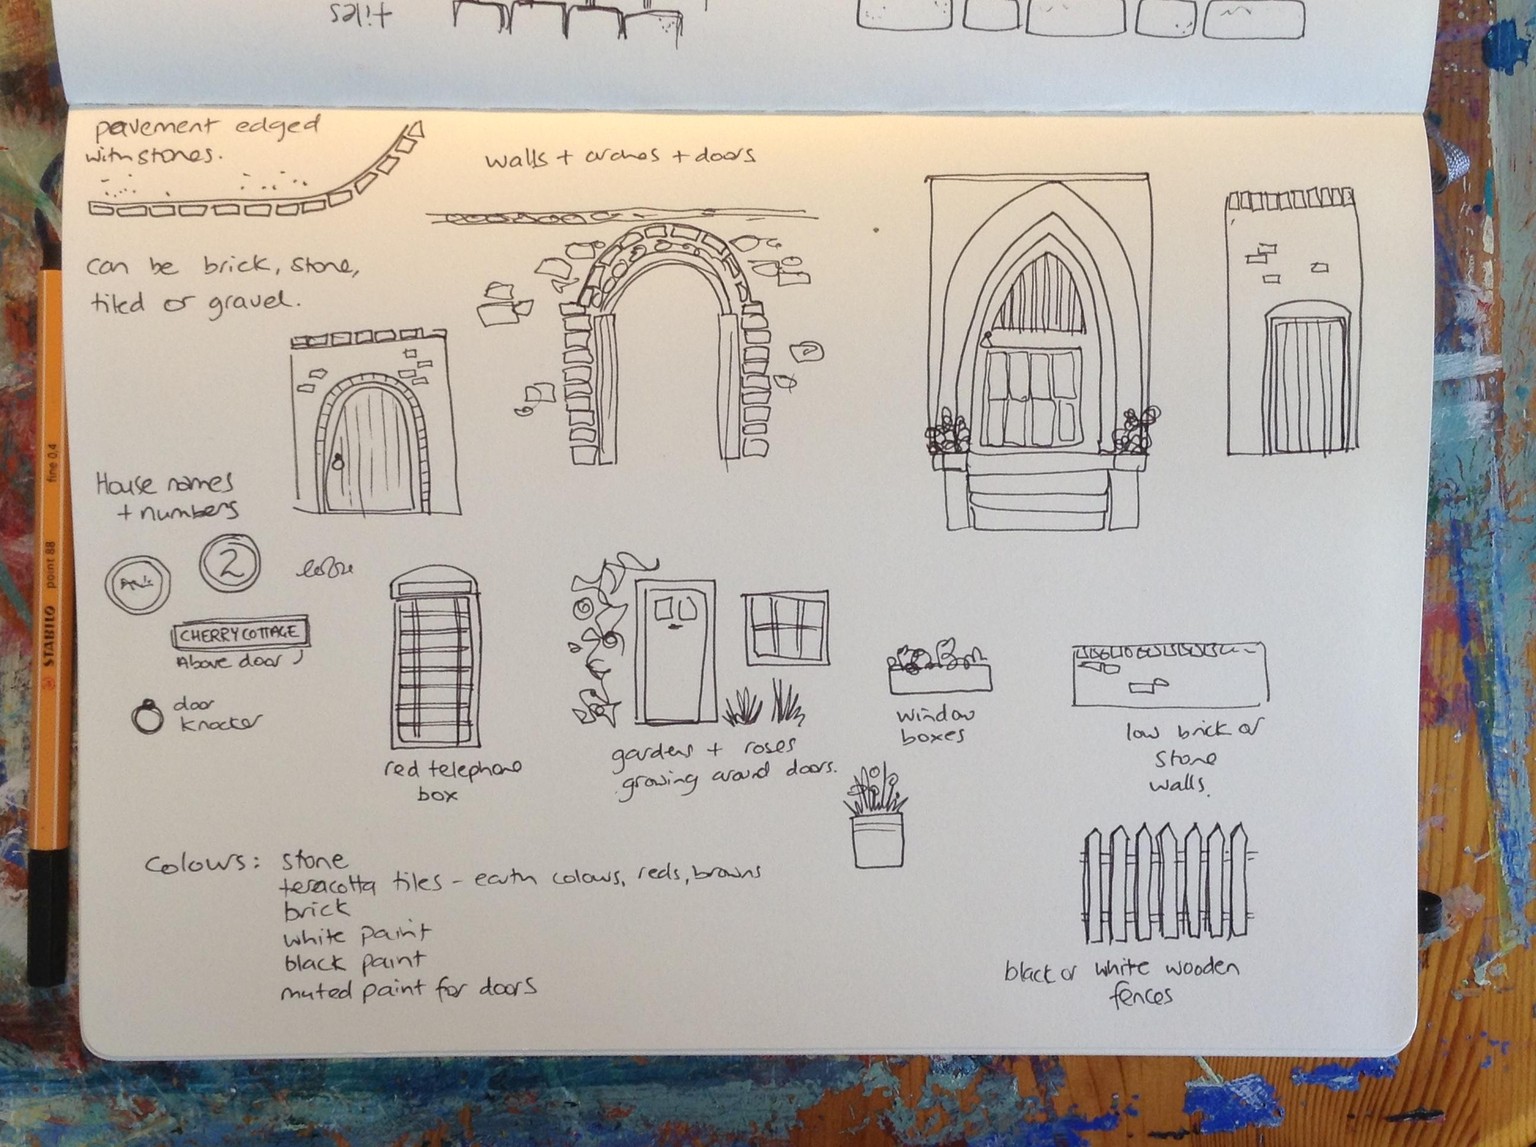 tiles
pavement edged
with stones.
walls + arches + doors
can be brick, stone,
tiled or gravel.
House names
+ numbers
2
CHERRY COTTAGE
Above door
door
knocker
red telephone
box
gardens + roses
growing around doors.
window
boxes
low brick or
stone
walls.
colours: stone
teracotta tiles - earth colours, reds, browns
brick
white paint
black paint
muted paint for doors
black or white wooden
fences
STABILO point 88 fine 0.4